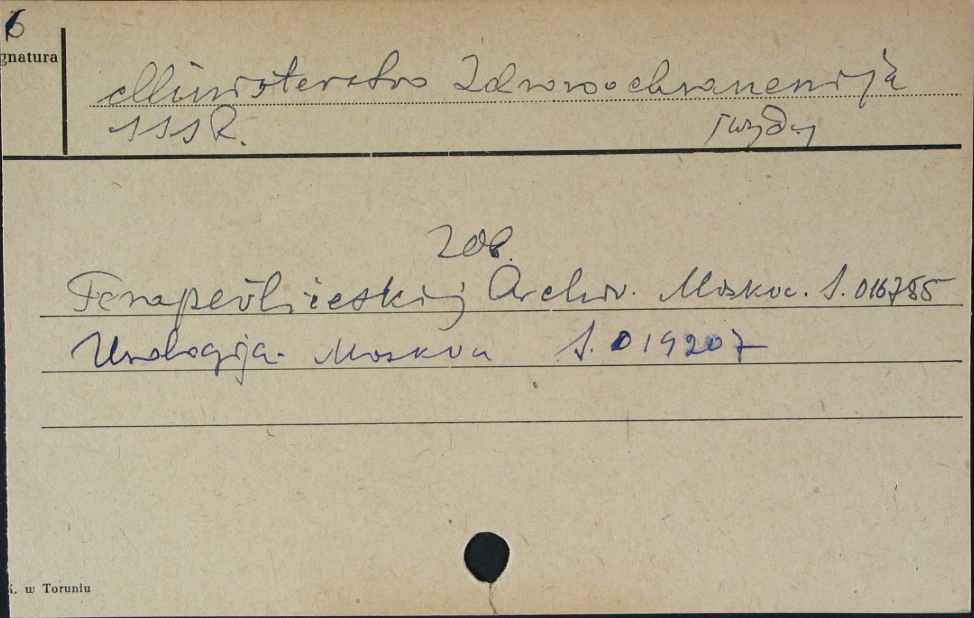 6
gnatura
Ministerstvo Zdrowoochranenija
SSSR.
zob.
Terapevtičeskij Archiv. Moskva. S. 016785
Urologija. Moskva S. 019207
k. w Toruniu